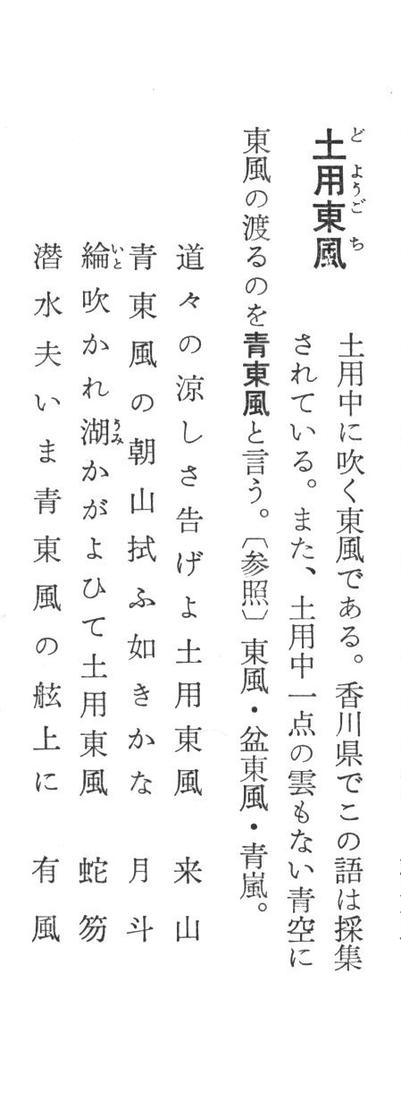 土用東風
土用中に吹く東風である。香川県でこの語は採集
されている。また、土用中一点の雲もない青空に
東風の渡るのを青東風と言う。〔参照〕東風・盆東風・青嵐。
道々の涼しさ告げよ土用東風　来山
青東風の朝山拭ふ如きかな　月斗
綸吹かれ湖かがよひて土用東風　蛇笏
潜水夫いま青東風の舷上に　有風